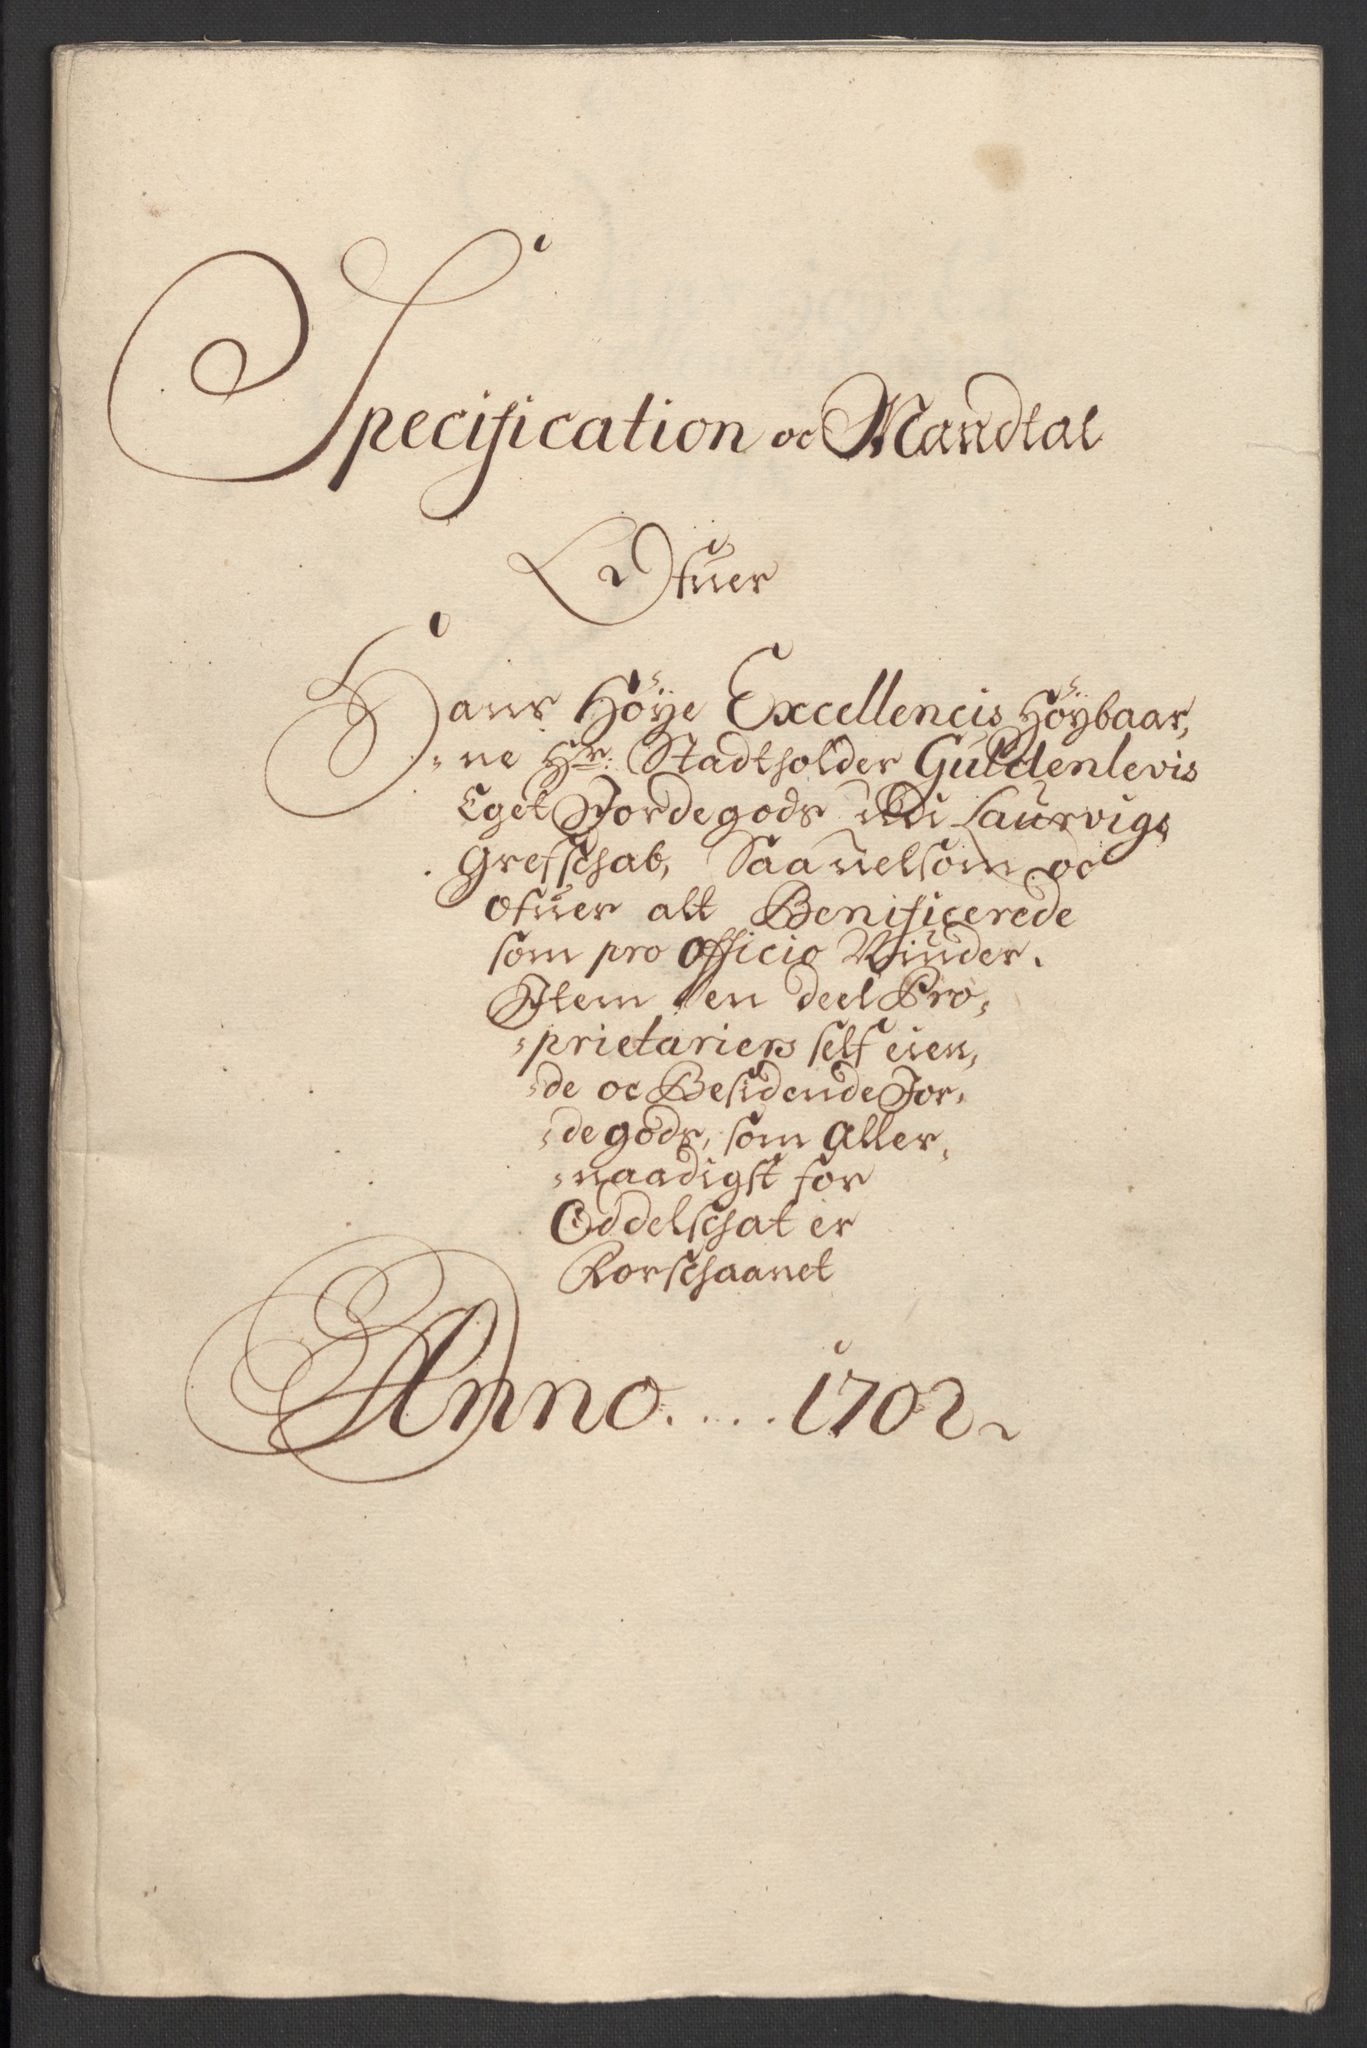 Specification oc Mandtal
Ofuer
Hans Höÿe Excellencis Höÿbaar,
ne Hr: Stadtholder Guldenlevis
Eget Jordegods udi Laurvigs
Grefschab, Saauelsom oc
ofuer alt Benificerede
som pro Officio Niuder.
Item en deel Pro,
prietariers self eien,
de oc Besidende Jor,
de gods, som Aller,
naadigst for
Oddelschat er
Forschaanet
Anno.... 1702